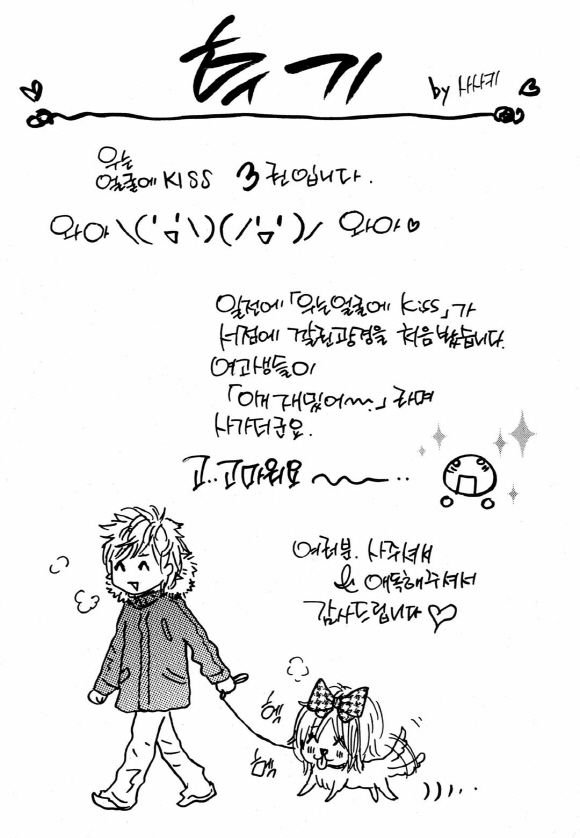 후기
by 사사키
우는
얼굴에 KISS 3권입니다.
와아 \(';'\)(/';')/ 와아♡
일전에 「우는 얼굴에 Kiss」가
서점에 깔린 광경을 처음 봤습니다.
여고생들이
「이게 재밌어~.」라며
사가더군요.
고..고마워요 ~~~..
여러분. 사주셔서
& 애독해주셔서
감사드립니다♡
헥
헥